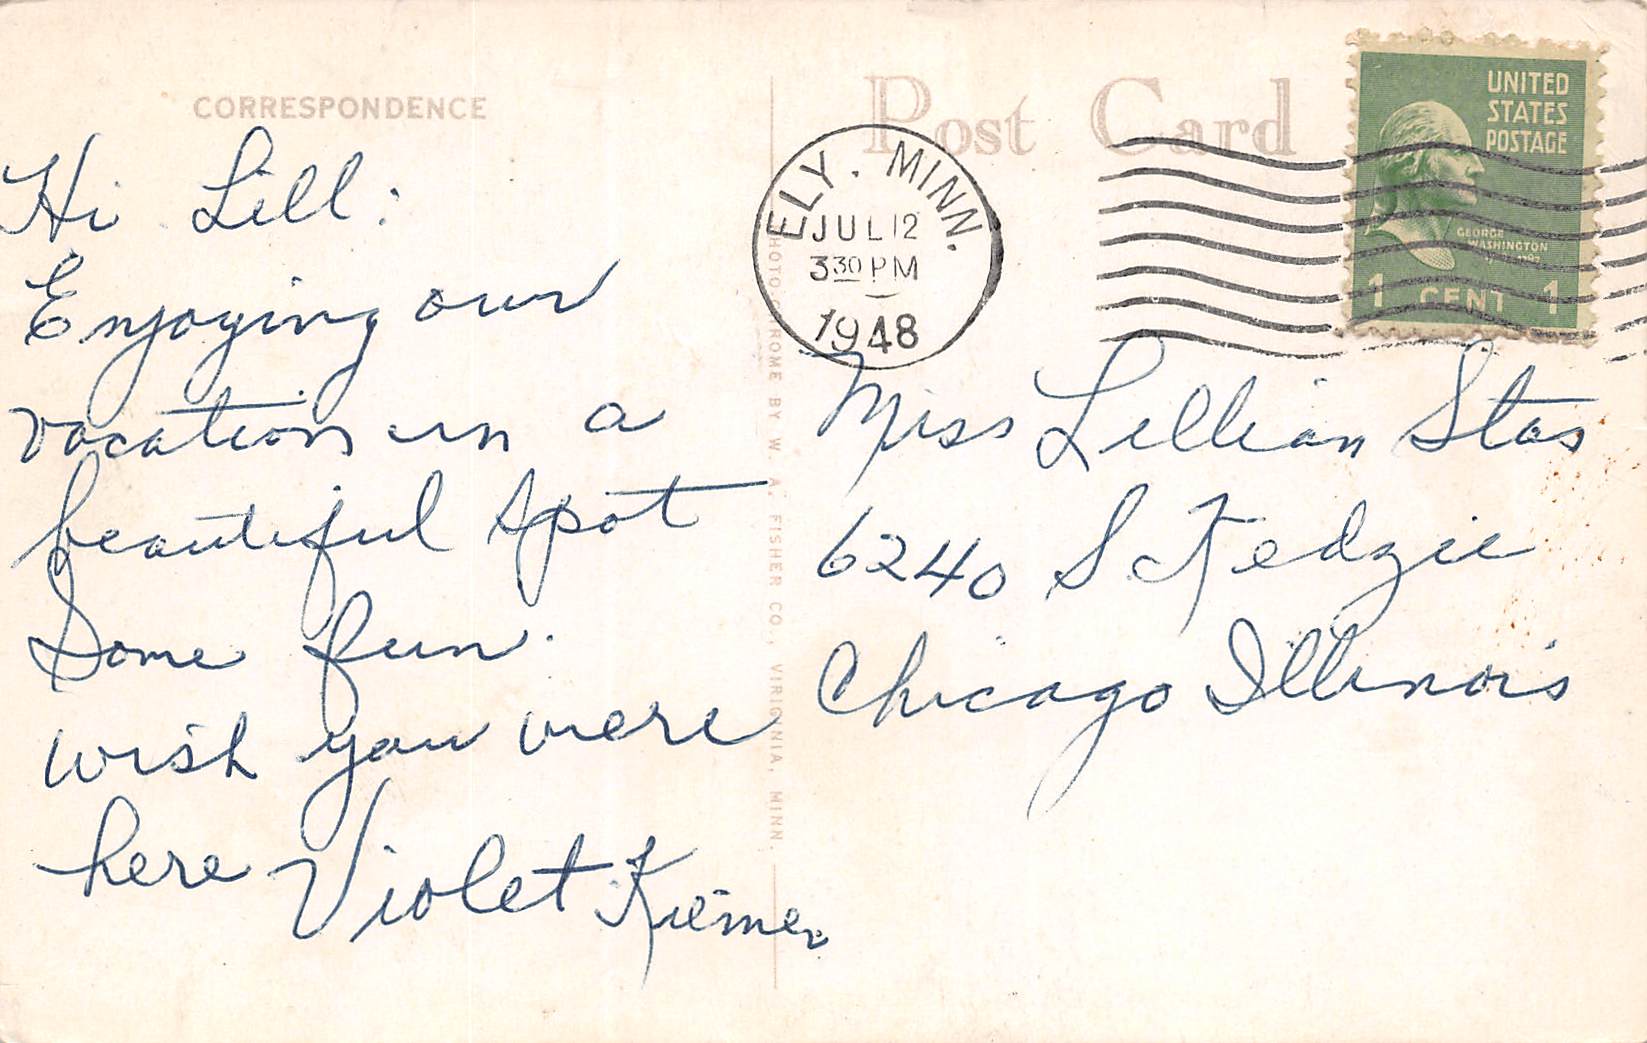 CORRESPONDENCE
Post Card
UNITED
STATES
POSTAGE
GEORGE
WASHINGTON
1 CENT 1
ELY. MINN.
JUL 12
3 30 PM
1948
Hi Lill:
Enjoying our
vacation in a
beautiful spot
Some fun.
wish you were
here Violet
Miss Lillian Stas
6240 S Kedzie
Chicago Illinois
BY W. A. FISHER CO., VIRIGNIA, MINN.